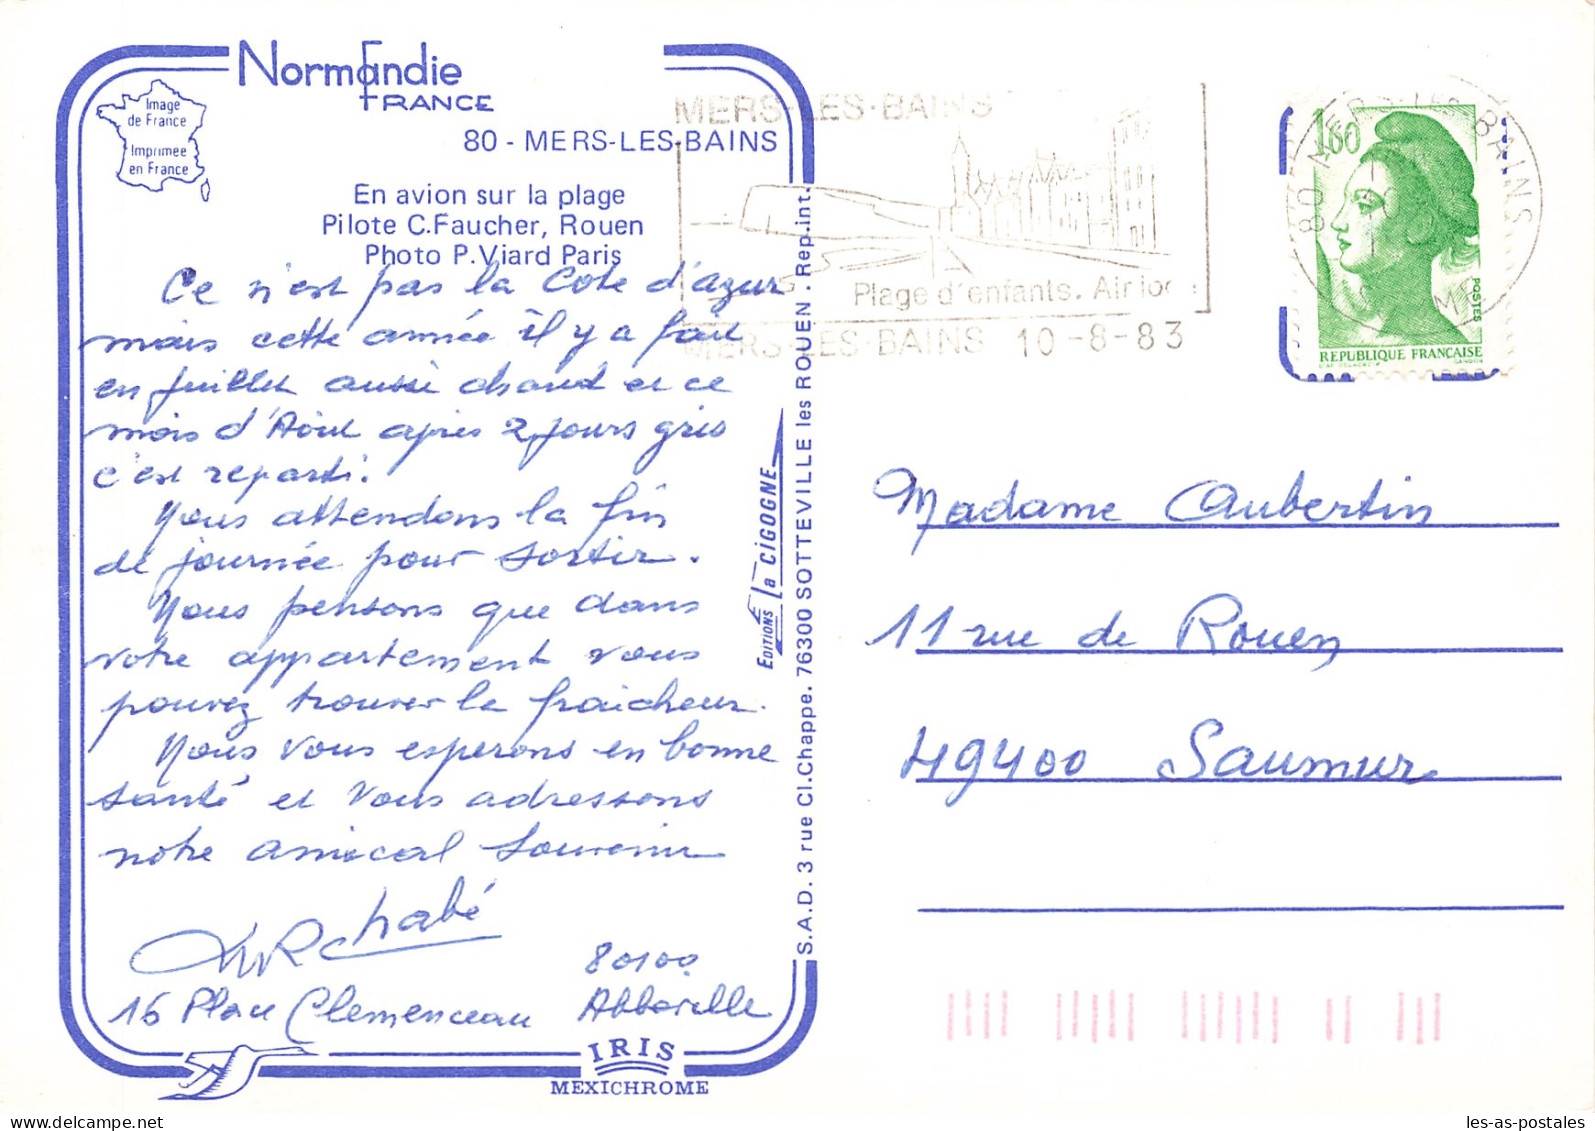 Normandie
FRANCE
Image
de France
Imprimée
en France
80 - MERS-LES-BAINS
En avion sur la plage
Pilote C.Faucher, Rouen
Photo P.Viard Paris
Ce n'est pas la Cote d'azur
mais cette année il y a fait
en juillet aussi chaud et ce
mois d'Aout après 2 jours gris
c'est reparti.
Nous attendons la fin
de journée pour sortir.
Nous pensons que dans
votre appartement vous
pouvez trouver la fraicheur.
Nous vous esperons en bonne
santé et vous adressons
notre amical souvenir
Chabé
16 Place Clemenceau
80100
Abbeville
IRIS
MEXICHROME
EDITIONS la CIGOGNE
S.A.D. 3 rue Cl.Chappe. 76300 SOTTEVILLE les ROUEN . Rep.int.
MERS-LES-BAINS
Plage d'enfants. Air
MERS-LES-BAINS 10-8-83
80 MERS-LES-BAINS
1,60
POSTES
REPUBLIQUE FRANÇAISE
GANDON
Madame Aubertin
11 rue de Rouen
49400 Saumur
les-as-postales